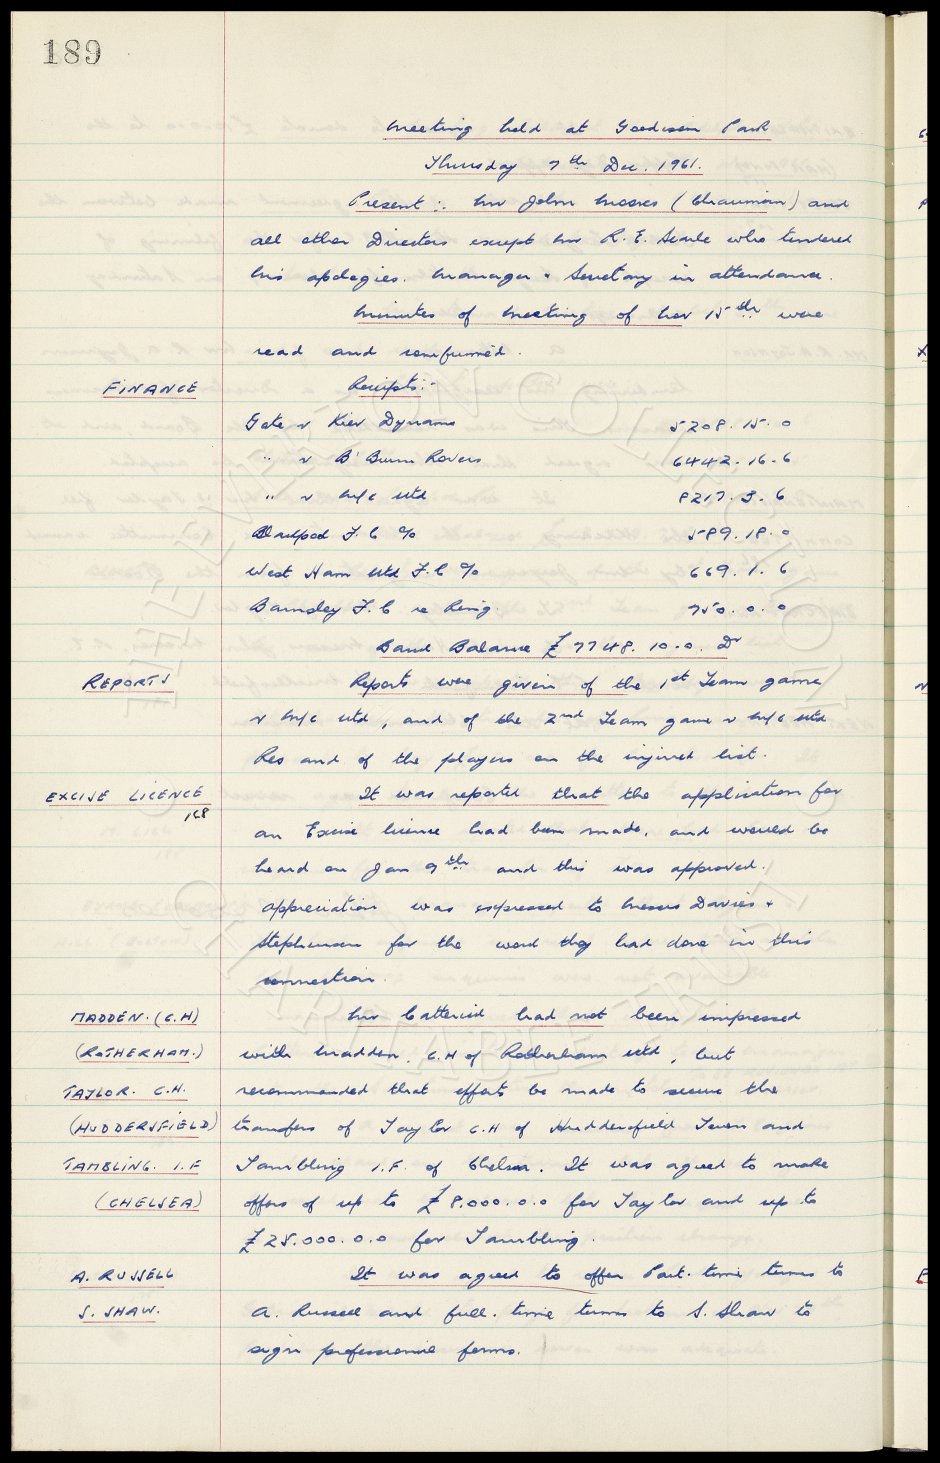 189
Meeting held at Goodison Park
Thursday 7th Dec. 1961.
Present :. Mr John Moores (Chairman) and
all other Directors except Mr R. E. Searle who tendered
his apologies. Manager & Secretary in attendance.
Minutes of Meeting of Nov 15th were
read and confirmed.
FINANCE Receipts:-
Gate v Kiev Dynamo 5208. 15. 0
" v B'Burn Rovers 6442. 16. 6
" v M/c Utd 8217. 3. 6
Blackpool F. C % 589. 18. 0
West Ham Utd F. C % 669. 1. 6
Barnsley F. C re Ring. 750. 0. 0
Bank Balance £7748. 10. 0. Dr
REPORTS Reports were given of the 1st Team game
v M/c Utd, and of the 2nd Team game v M/c Utd
Res and of the players on the injured list.
EXCISE LICENCE It was reported that the application for
168 an Excise licence had been made, and would be
heard on Jan 9th and this was approved.
Appreciation was expressed to Messrs Davies &
Stephenson for the work they had done in this
connection.
MADDEN. (C.H) Mr Catterick had not been impressed
(ROTHERHAM.) with Madden, C.H of Rotherham Utd, but
TAYLOR. C.H. recommended that efforts be made to secure the
(HUDDERSFIELD) transfers of Taylor C.H of Huddersfield Town and
TAMBLING. I.F Tambling I.F. of Chelsea. It was agreed to make
(CHELSEA) offers of up to £8.000.0.0 for Taylor and up to
£25.000.0.0 for Tambling.
A. RUSSELL It was agreed to offer Part. time terms to
S. SHAW. A. Russell and full. time terms to S. Shaw to
sign professional forms.
EVERTON COLLECTION
CHARITABLE TRUST